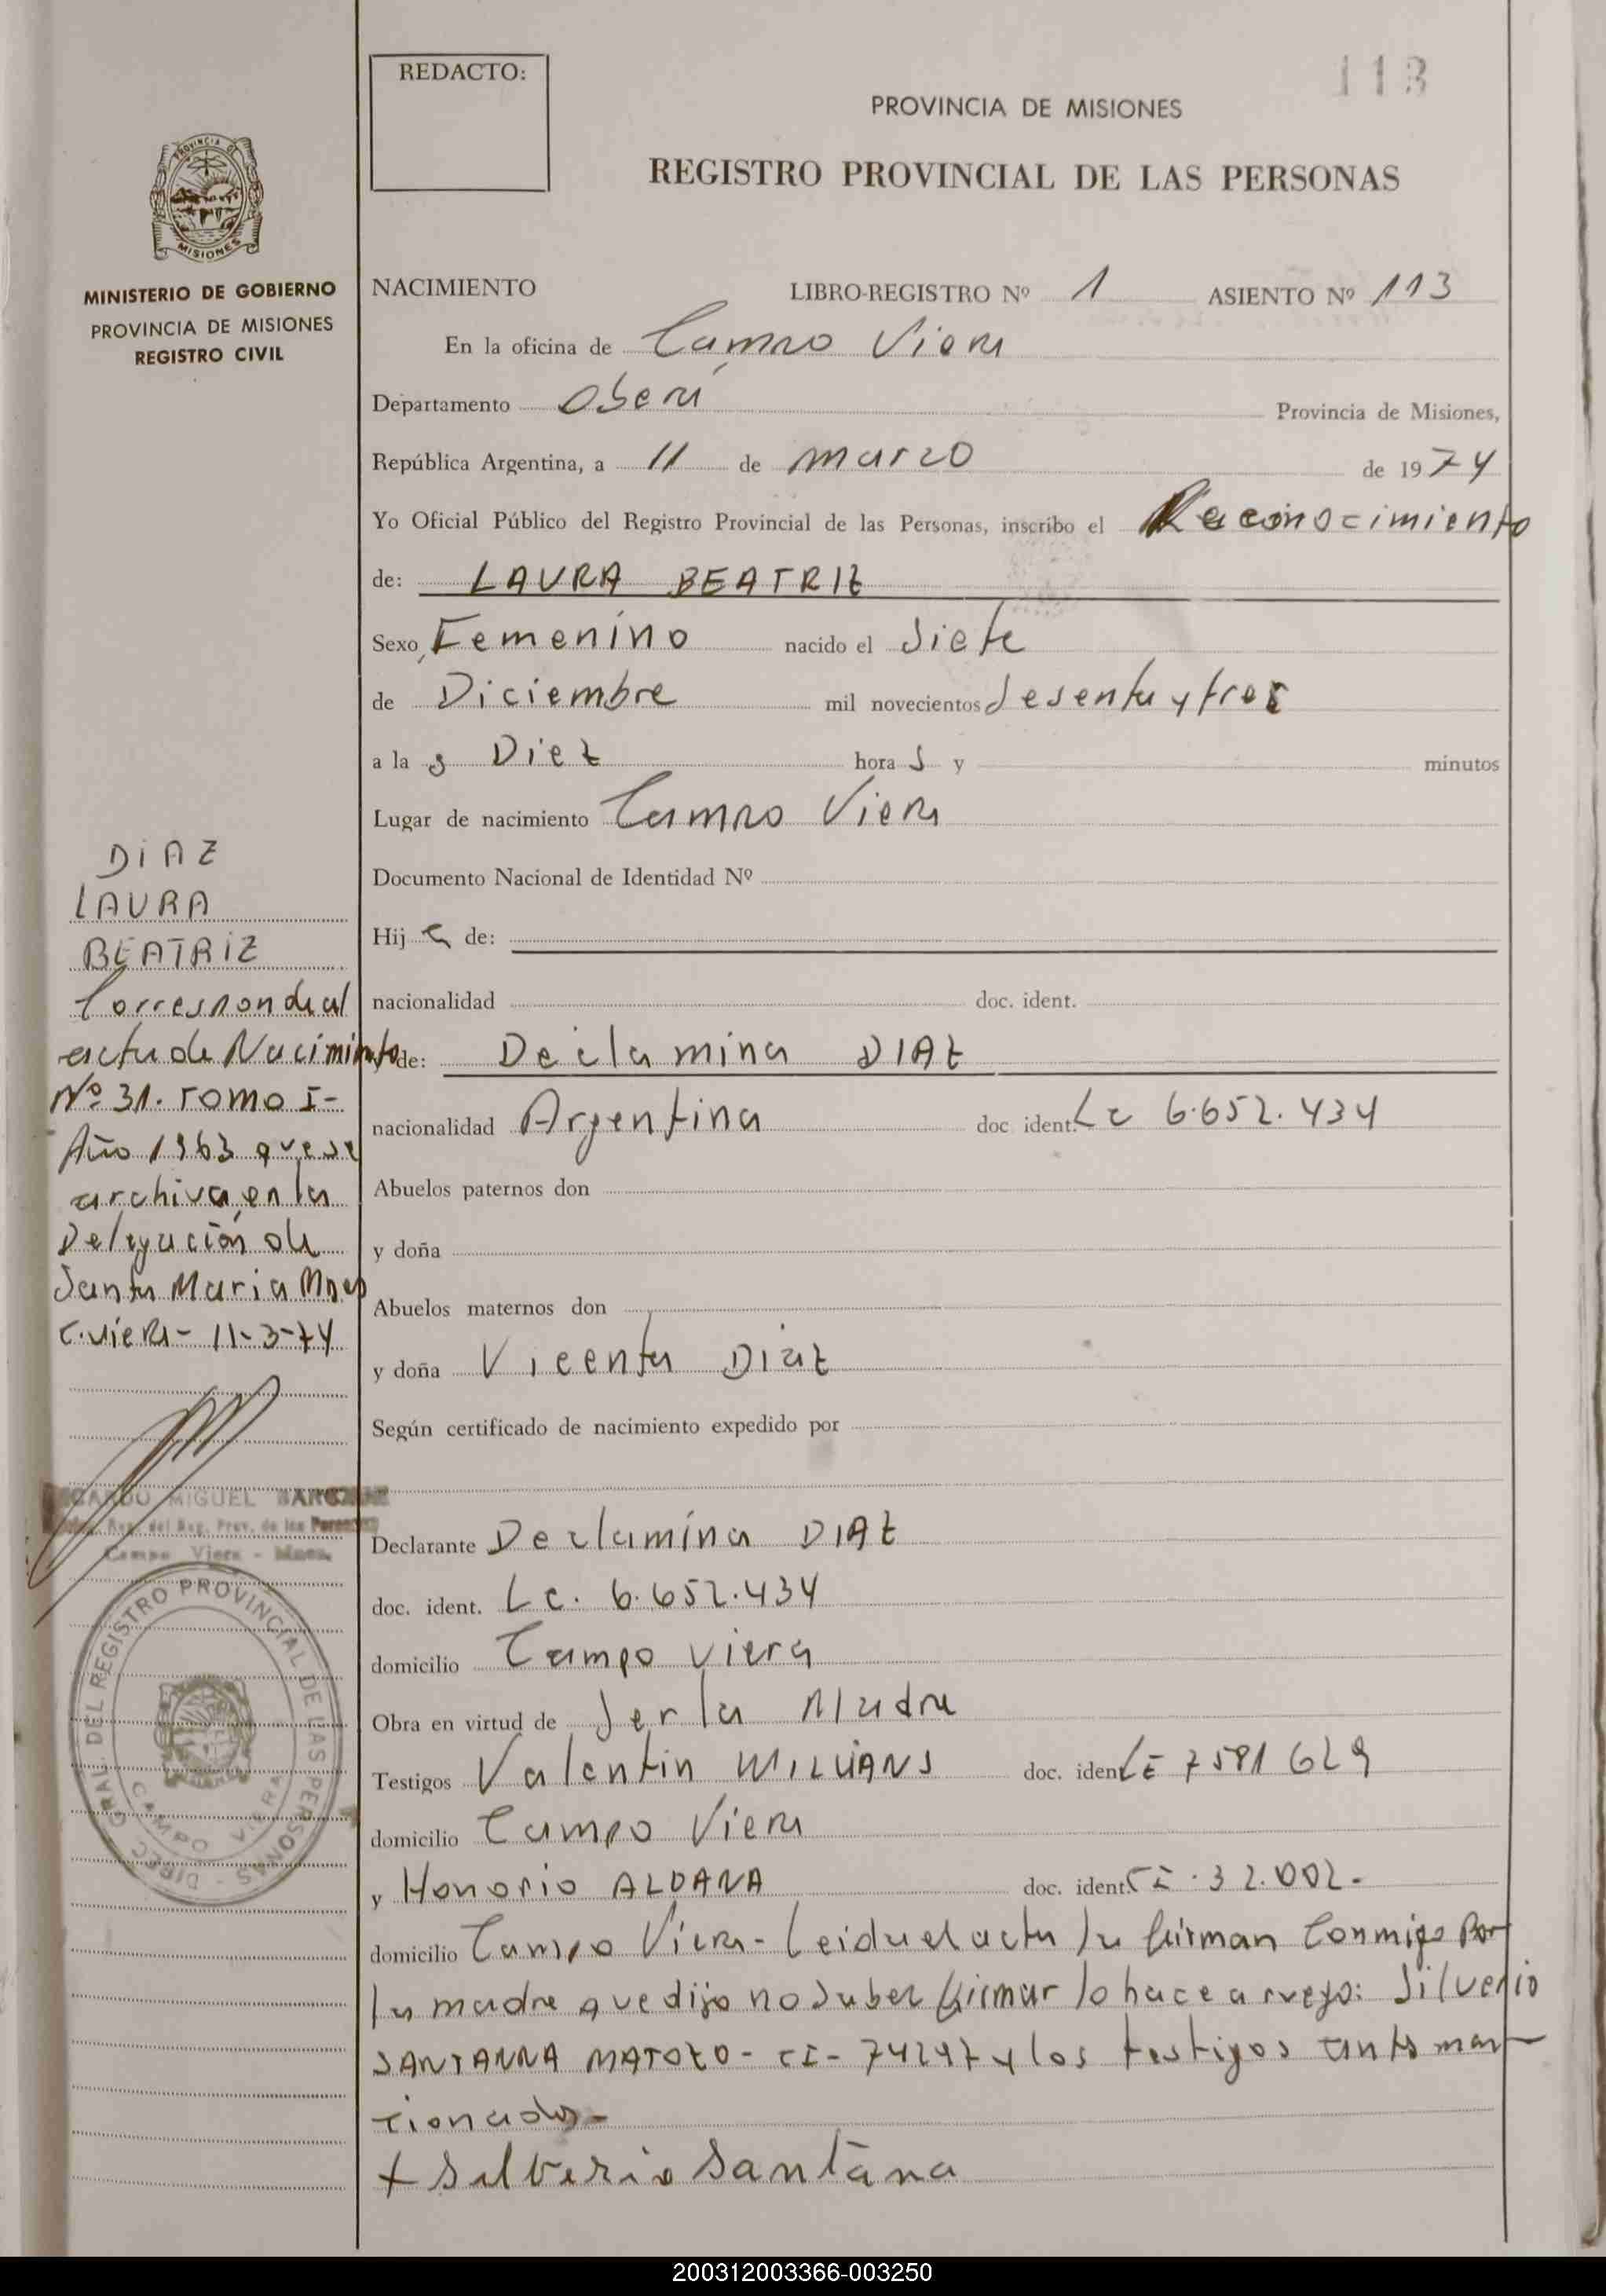 REDACTO:
113
PROVINCIA DE MISIONES
REGISTRO PROVINCIAL DE LAS PERSONAS
PROVINCIA DE
MISIONES
MINISTERIO DE GOBIERNO
PROVINCIA DE MISIONES
REGISTRO CIVIL
NACIMIENTO LIBRO-REGISTRO Nº 1 ASIENTO Nº 113
En la oficina de Campo Viera
Departamento Oberá Provincia de Misiones,
República Argentina, a 11 de marzo de 1974
Yo Oficial Público del Registro Provincial de las Personas, inscribo el Reconocimiento
de: LAURA BEATRIZ
Sexo Femenino nacido el Siete
de Diciembre mil novecientos sesenta y tres
a la s Diez hora s y minutos
Lugar de nacimiento Campo Viera
Documento Nacional de Identidad Nº
Hij a de:
nacionalidad doc. ident.
y de: Declamina DIAZ
nacionalidad Argentina doc ident. LC 6.652.434
Abuelos paternos don
y doña
Abuelos maternos don
y doña Vicenta Diaz
Según certificado de nacimiento expedido por
Declarante Declamina DIAZ
doc. ident. LC. 6.652.434
domicilio Campo Viera
Obra en virtud de Ser la Madre
Testigos Valentin WILLIANS doc. ident LE 7581629
domicilio Campo Viera
y Honorio ALDANA doc. ident. CI. 32.002.-
domicilio Campo Viera- Leida el acta la firman Conmigo Por
la madre que dijo no saber firmar lo hace a ruego: Silverio
SANTANNA MATOZO- CI- 74247 y los testigos antes men-
cionados-
+ Silverio Santana
DIAZ
LAURA
BEATRIZ
Corresponde al
acta de Nacimiento
Nº 31. Tomo I-
Año 1963 que se
archiva en la
Delegación de
Santa Maria Mnes
C. Viera- 11-3-74
MIGUEL
Reg. del Reg. Prov. de las Personas
Campo Viera - Mnes.
DIREC. GRAL. DEL REGISTRO PROVINCIAL DE LAS PERSONAS -
CAMPO VIERA
200312003366-003250